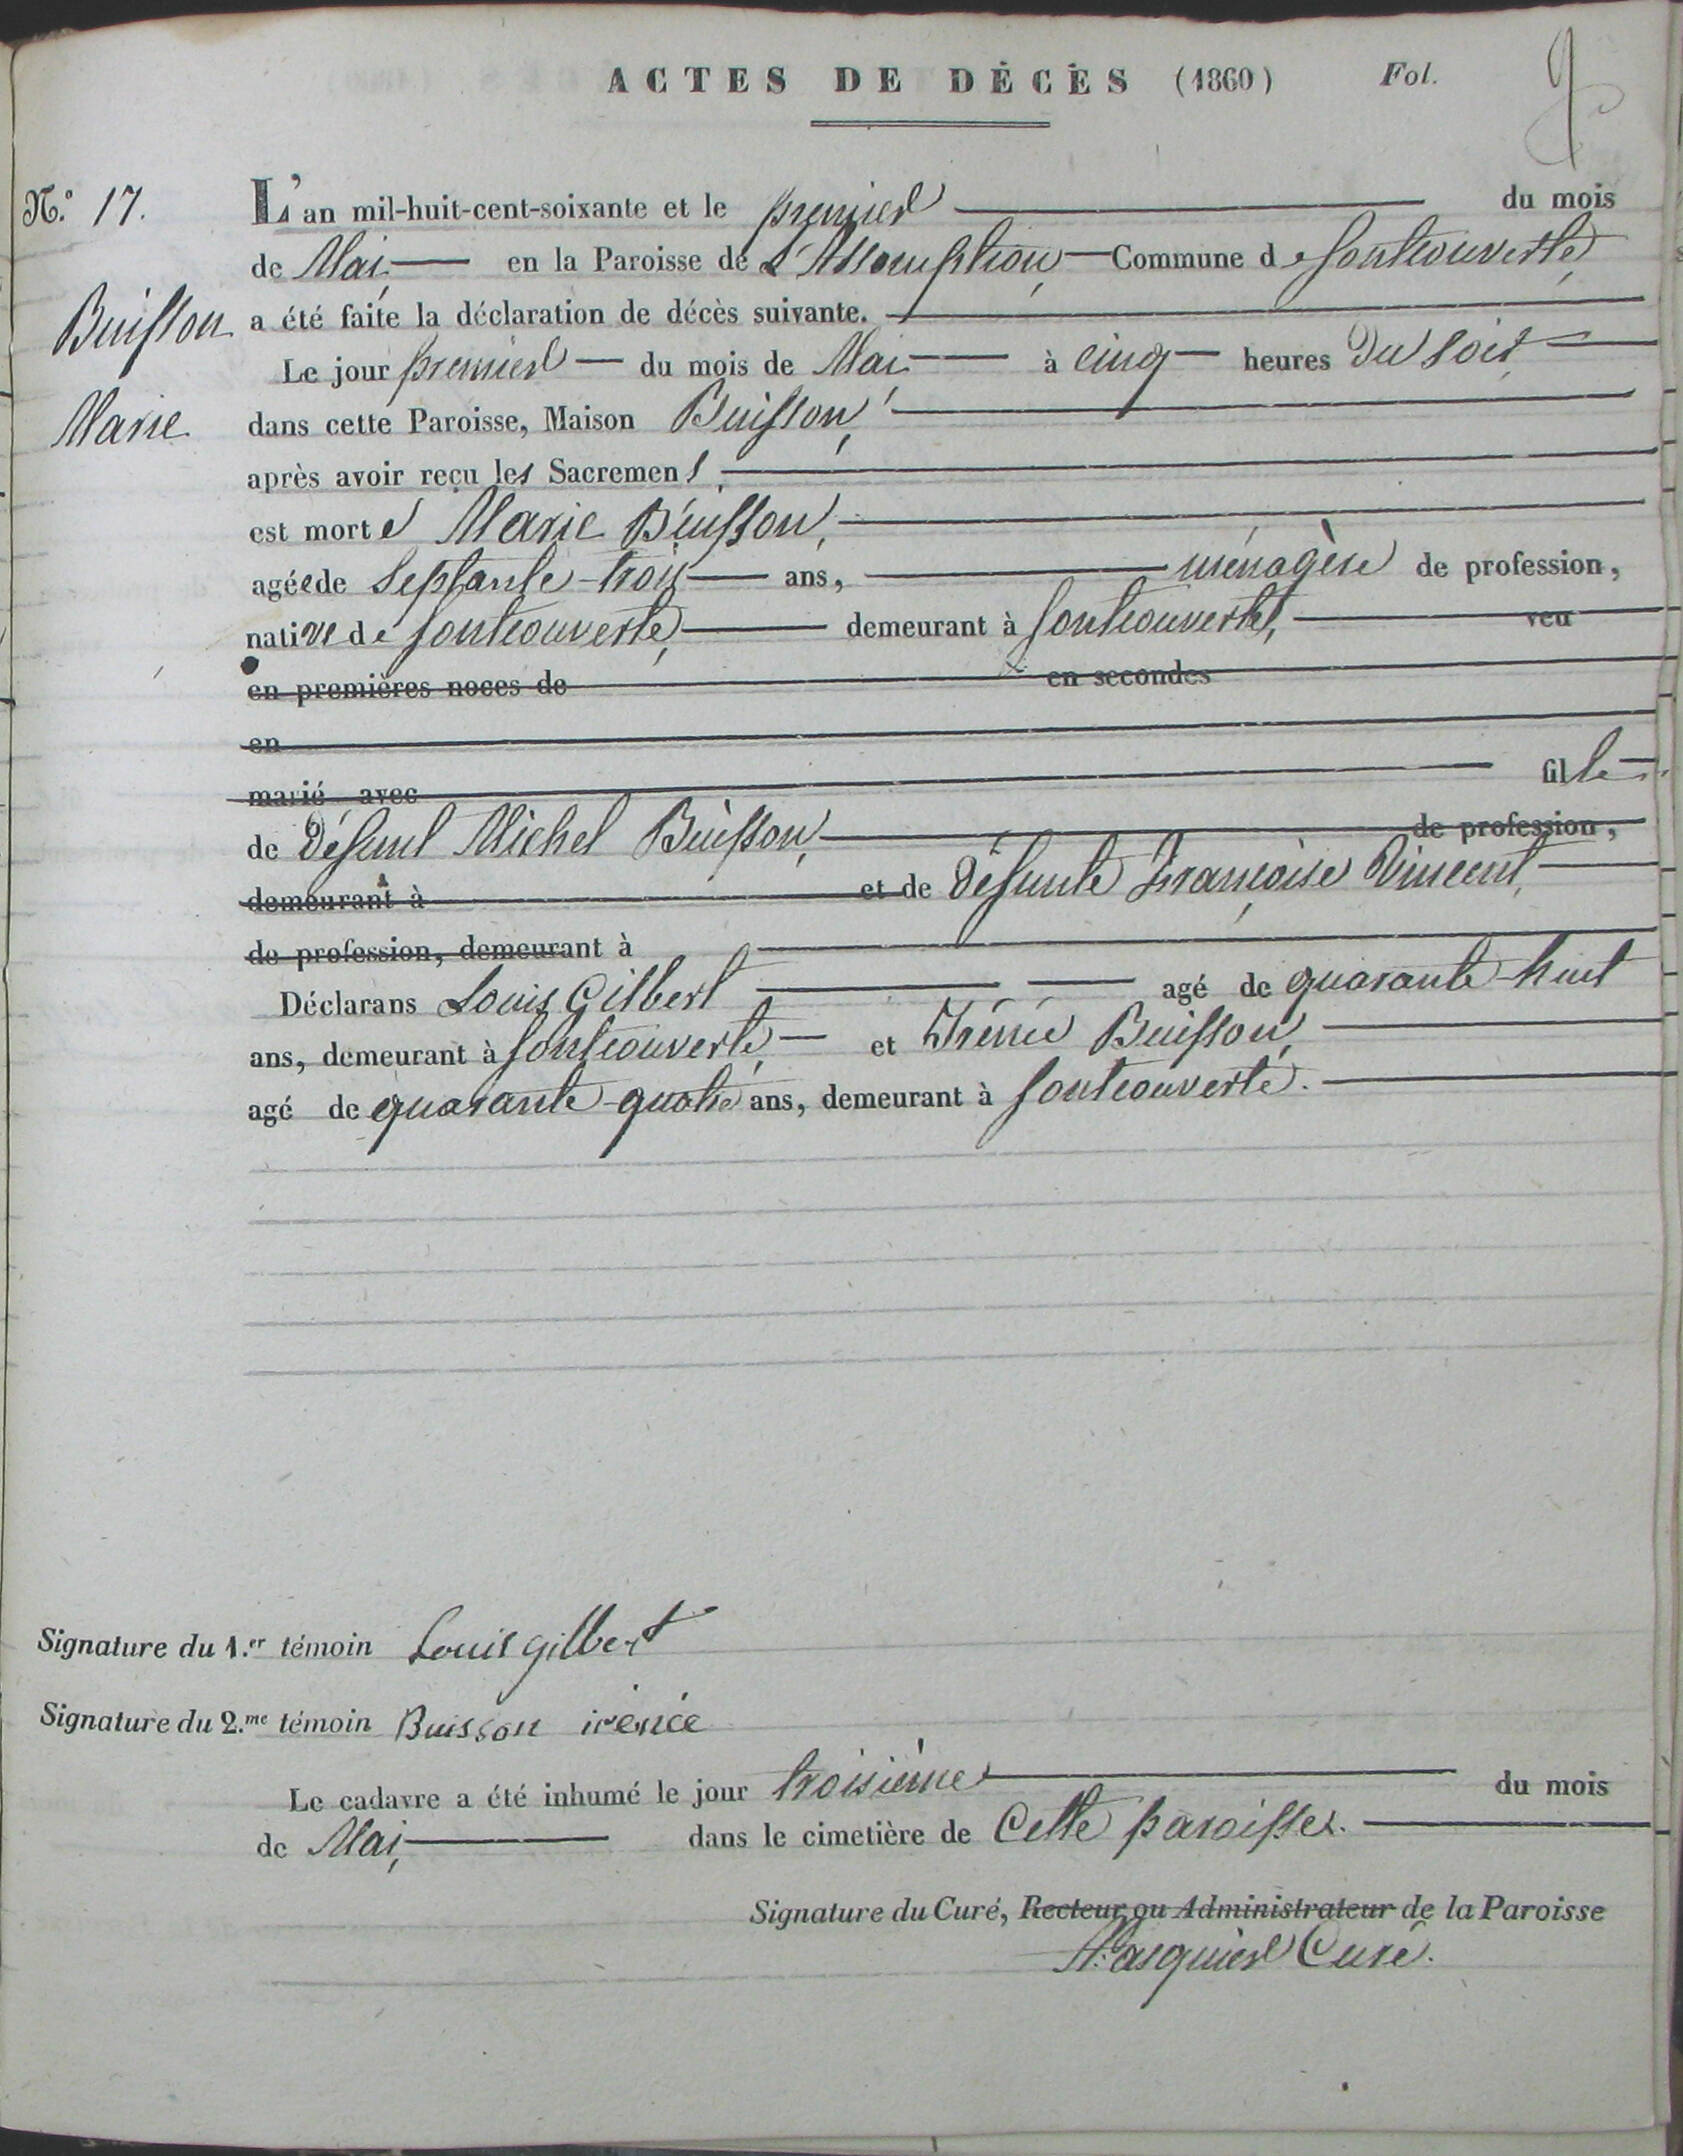 ACTES DE DÉCÈS (1860) Fol. 9
N.º 17. L'an mil-huit-cent-soixante et le premier du mois
de Mai en la Paroisse de L'Assomption, Commune de Fontcouverte,
Buisson a été faite la déclaration de décès suivante.
Le jour premier du mois de Mai à cinq heures du soir
Marie dans cette Paroisse, Maison Buisson,
après avoir reçu les Sacremens,
est morte Marie Buisson,
agée de septante-trois ans, ménagère de profession,
native de Fontcouverte, demeurant à Fontcouverte, veu
en premières noces de en secondes
en
marié avec fille
de défunt Michel Buisson, de profession,
demeurant à et de défunte Françoise Vincent,
de profession, demeurant à
Déclarans Louis Gilbert agé de quarante-huit
ans, demeurant à Fontcouverte, et Irénée Buisson,
agé de quarante-quatre ans, demeurant à Fontcouverte.
Signature du 1.er témoin Louis gilbert
Signature du 2.me témoin Buisson irénée
Le cadavre a été inhumé le jour troisième du mois
de Mai, dans le cimetière de Cette paroisse.
Signature du Curé, Recteur ou Administrateur de la Paroisse
Curé.